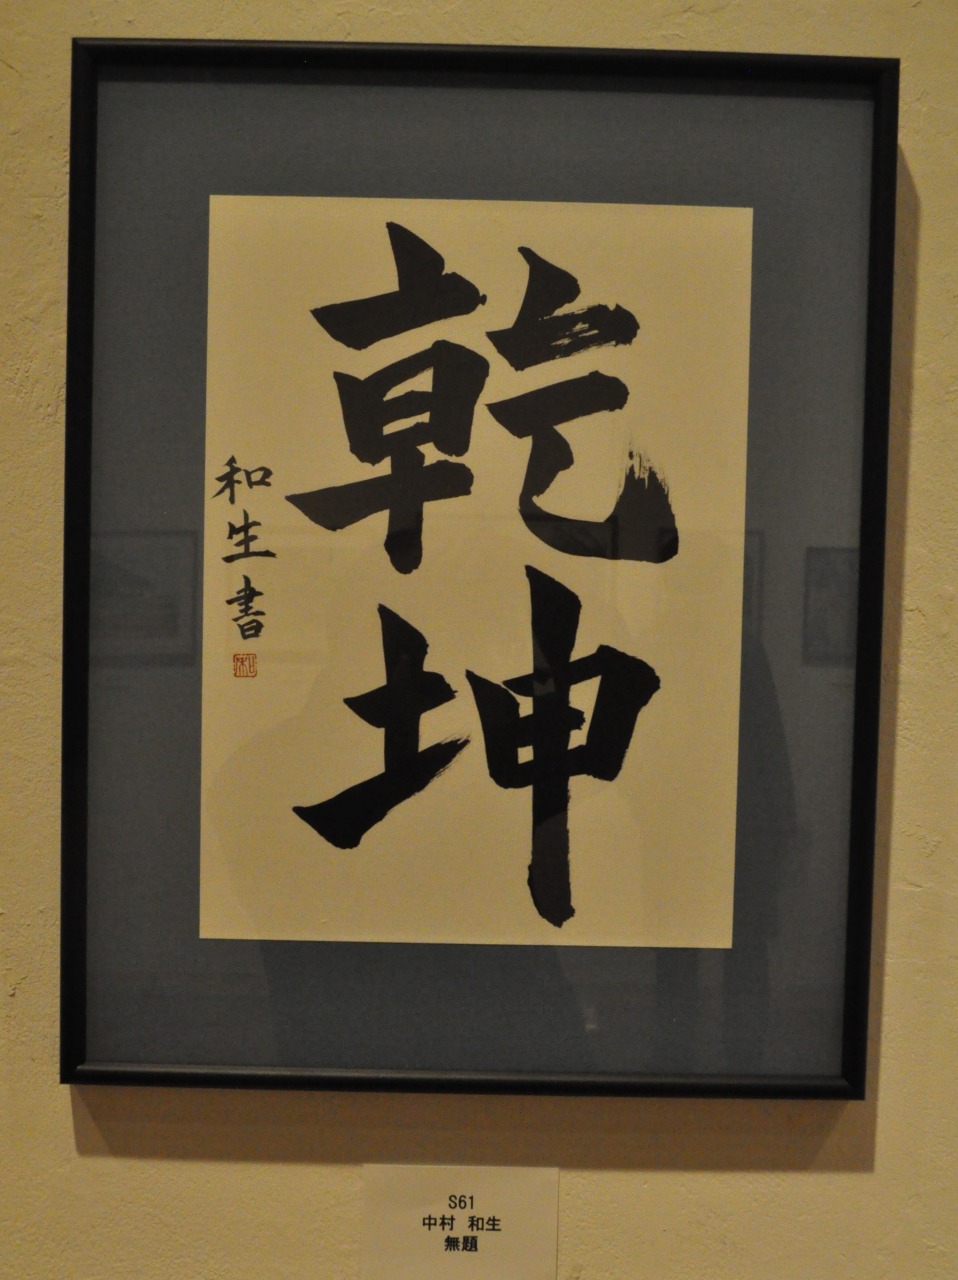 乾坤
和生書
S61
中村 和生
無題